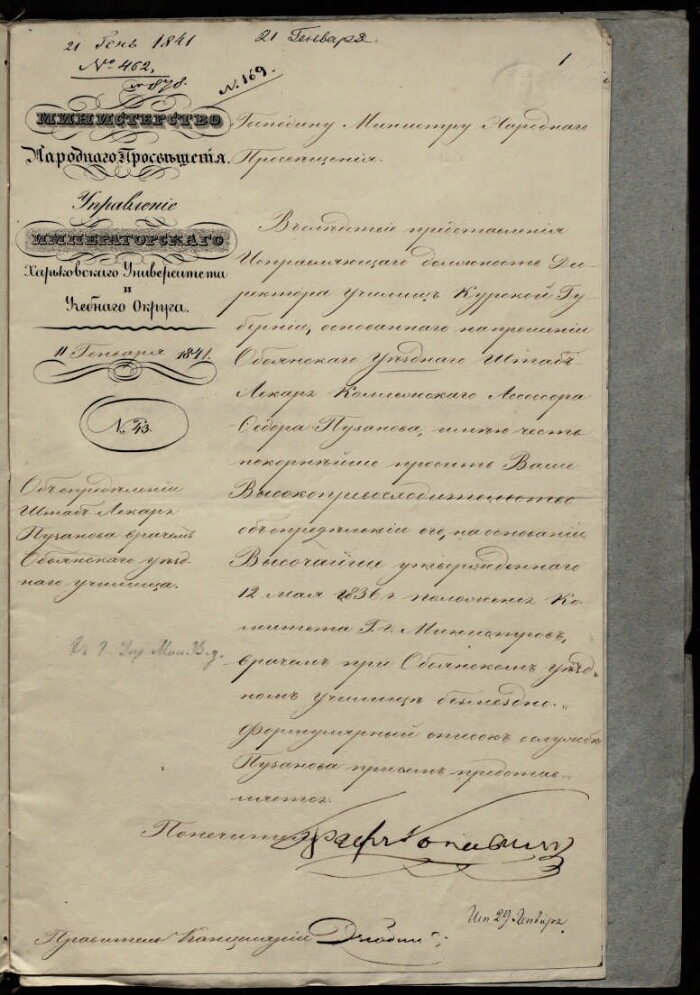 21 Генв 1841
21 Генваря.
№ 462.
878.
№ 169.
1
МИНИСТЕРСТВО
Народнаго Просвѣщенія.
Управленіе
ИМПЕРАТОРСКАГО
Харьковскаго Университета
и
Учебнаго Округа.
11 Генваря 1841.
№ 43.
Объ опредѣленіи
Штабъ-Лекаря
Пузанова врачемъ
Обоянскаго уѣзд-
наго училища.
Господину Министру Народнаго
Просвѣщенія.
Въ слѣдствіе представленія
Исправляющаго должность Ди-
ректора училищъ Курской Гу-
берніи, основаннаго на прошеніи
Обоянскаго уѣзднаго Штабъ-
Лекаря Коллежскаго Ассесора
Ѳедора Пузанова, имѣю честь
покорнѣйше просить Ваше
Высокопревосходительство
объ опредѣленіи его, на основаніи
Высочайше утвержденнаго
12 мая 1836 г. положенія Ко-
митета Г.г. Министровъ,
врачемъ при Обоянскомъ уѣзд-
номъ училищѣ безмездно.
Формулярный списокъ о службѣ
Пузанова при семъ представ-
ляется.
Попечитель Графъ Головкинъ
Исп 29 Генваря
Правитель Канцеляріи